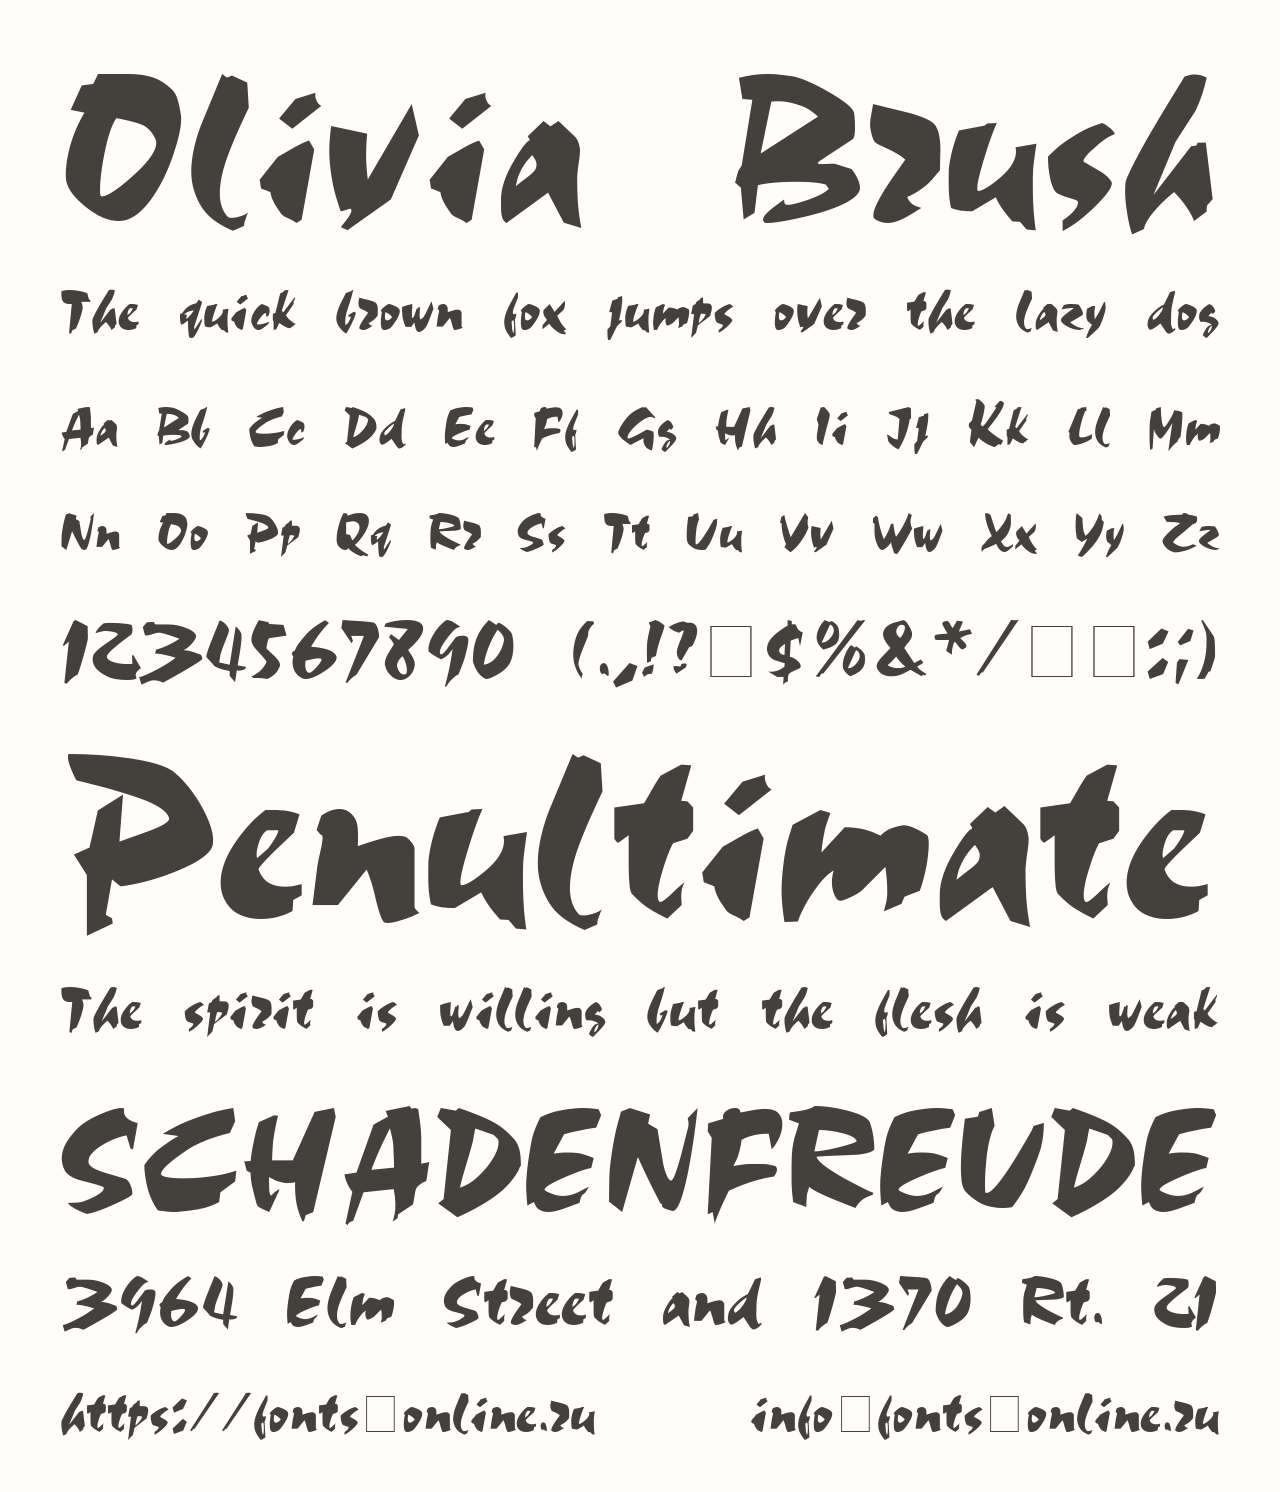 Olivia Brush
The quick brown fox jumps over the lazy dog
Aa Bb Cc Dd Ee Ff Gg Hh Ii Jj Kk Ll Mm
Nn Oo Pp Qq Rr Ss Tt Uu Vv Ww Xx Yy Zz
1234567890 (.,!?□$%&*/□□:;)
Penultimate
The spirit is willing but the flesh is weak
SCHADENFREUDE
3964 Elm Street and 1370 Rt. 21
https://fonts□online.ru info□fonts□online.ru